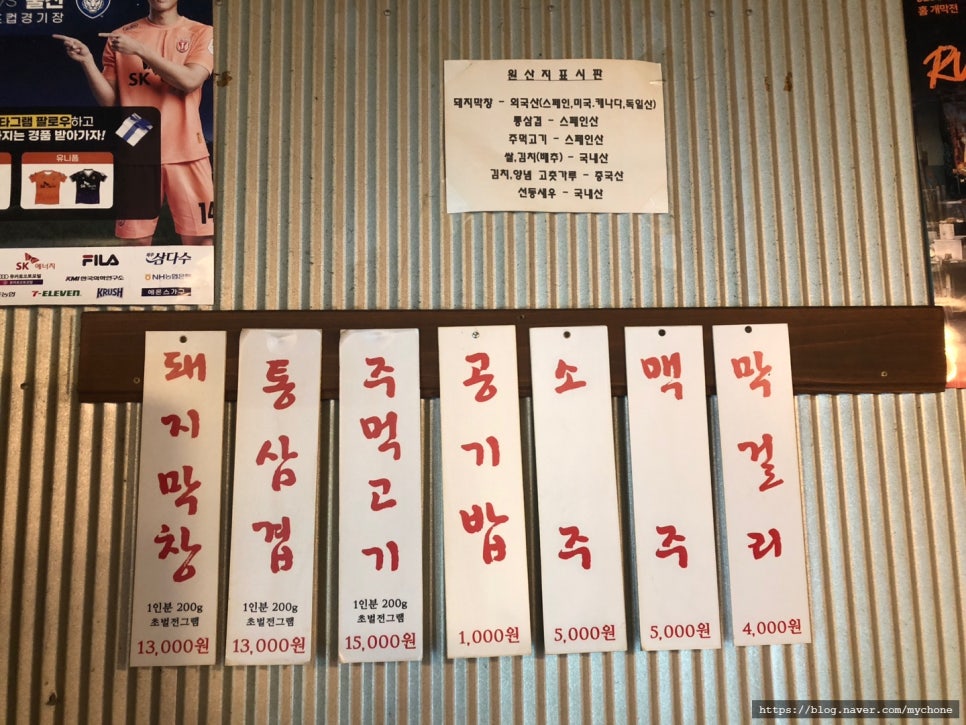 VS 울산
드컵경기장
SK
타그램 팔로우하고
경품 받아가자!
유니폼
14
SK에너지
FILA
제주삼다수
KMI한국의학연구소
NH농협은행
7-ELEVEN
KRUSH
에몬스가구
홈 개막전
원산지표시판
돼지막창 - 외국산(스페인,미국.캐나다,독일산)
통삼겹 - 스페인산
주먹고기 - 스페인산
쌀,김치(배추) - 국내산
김치,양념 고춧가루 - 중국산
선동새우 - 국내산
돼지막창
1인분 200g
초벌전그램
13,000원
통삼겹
1인분 200g
초벌전그램
13,000원
주먹고기
1인분 200g
초벌전그램
15,000원
공기밥
1,000원
소주
5,000원
맥주
5,000원
막걸리
4,000원
https://blog.naver.com/mychone